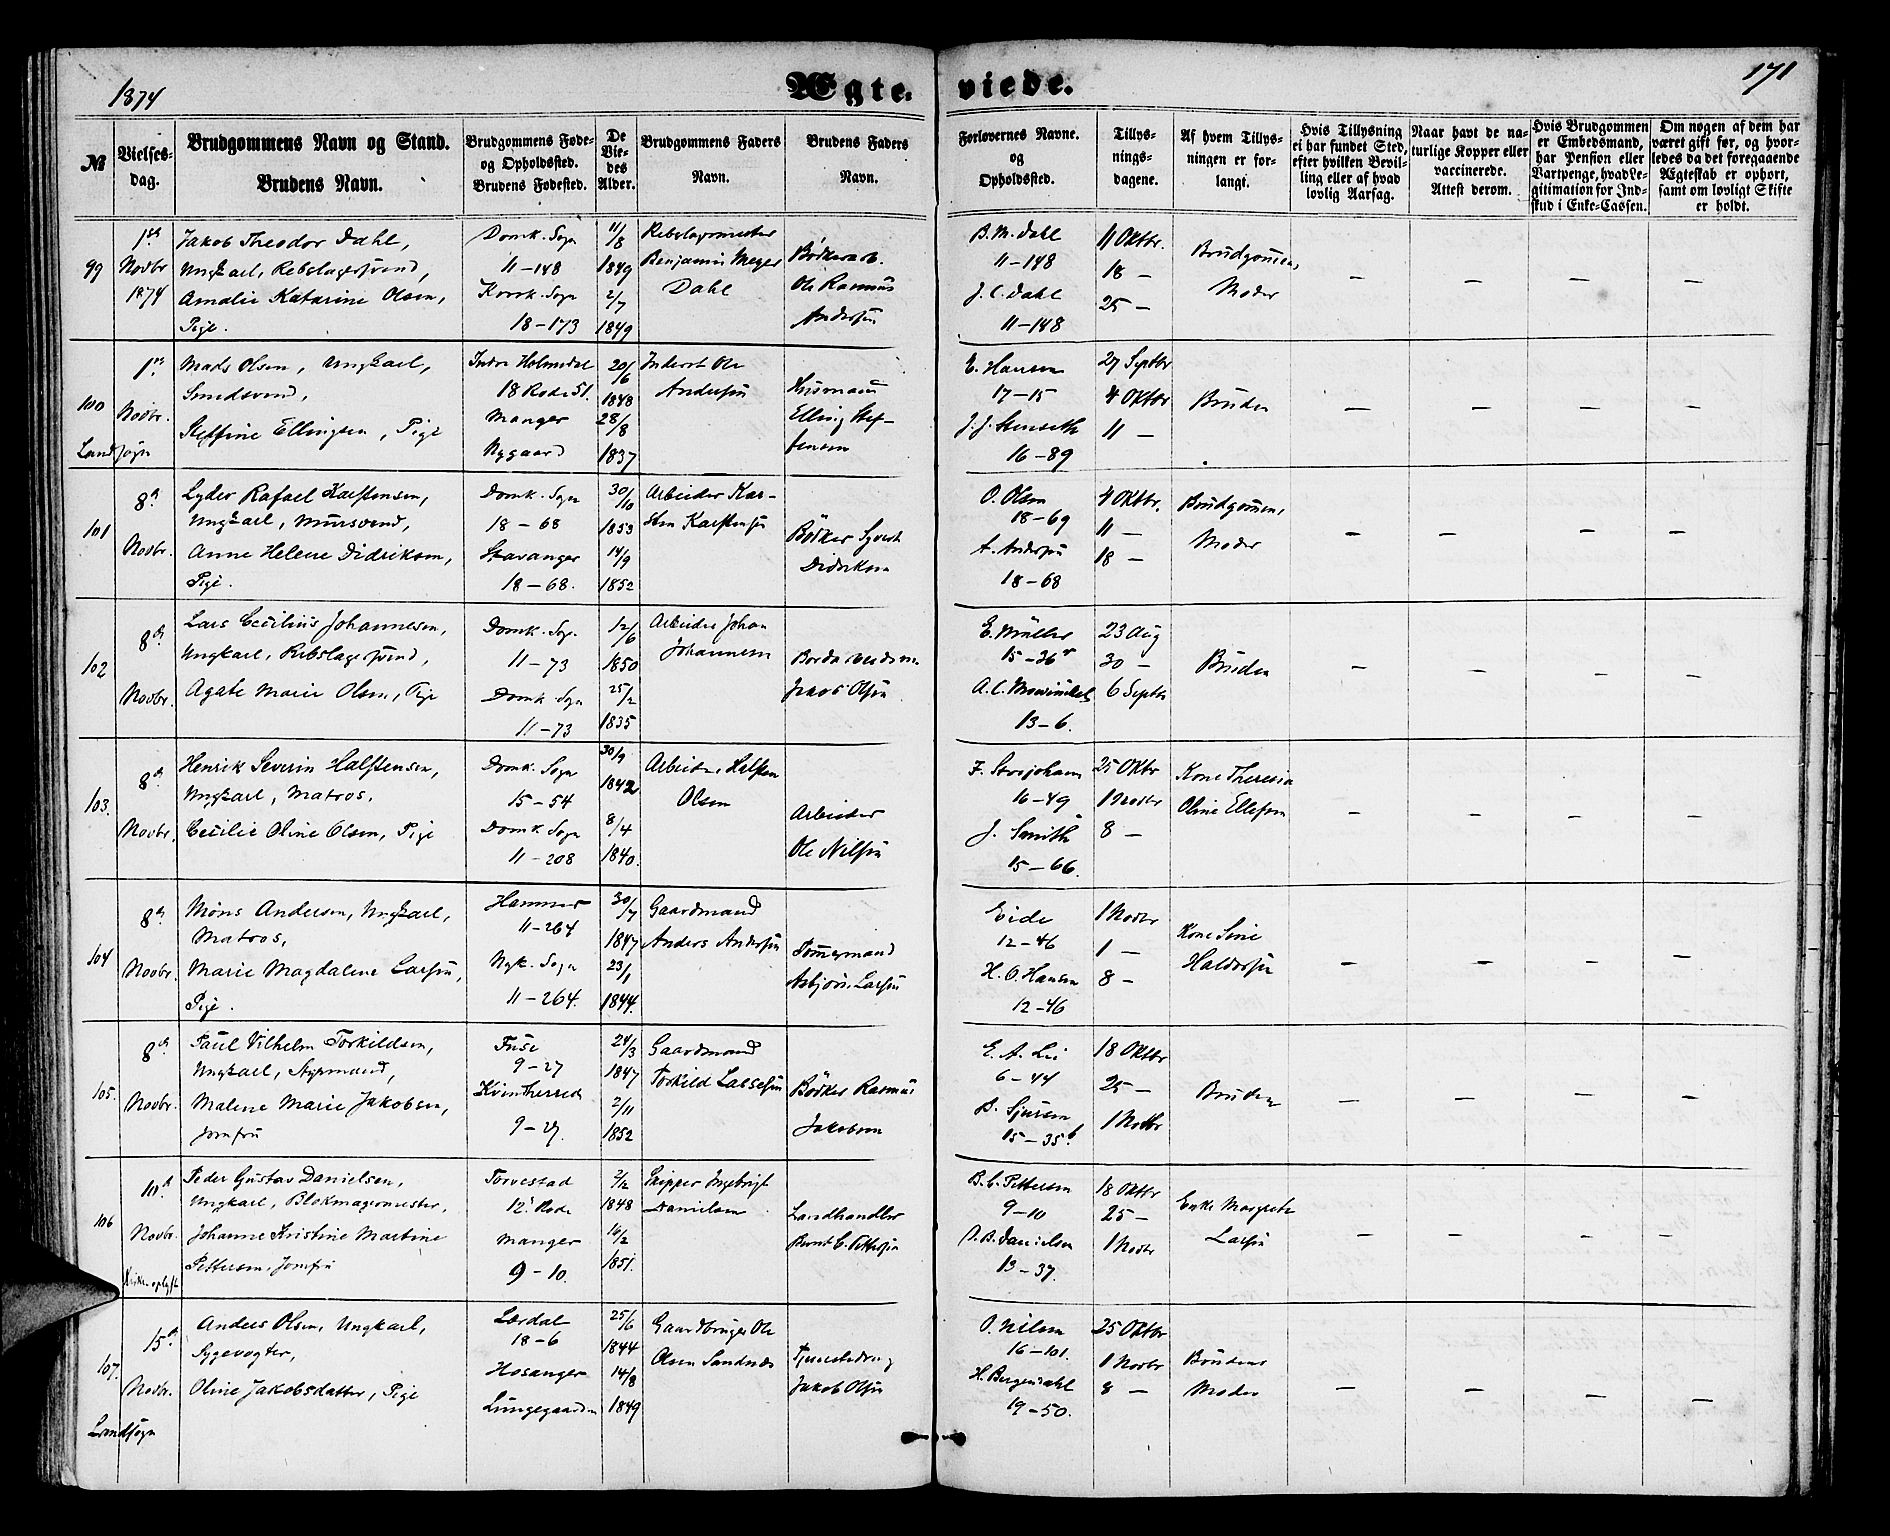 1874
Ægte-
viede.
171
№
Vielses-
dag.
Brudgommens Navn og Stand.
Brudens Navn.
Brudgommens Føde-
og Opholdssted.
Brudens Fødested.
De
Vie-
des
Alder.
Brudgommens Faders
Navn.
Brudens Faders
Navn.
Forlovernes Navne.
og
Opholdssted.
Tillys-
nings-
dagene.
Af hvem Tillys-
ningen er for-
langt.
Hvis Tillysning
ei har fundet Sted,
efter hvilken Bevil-
ling eller af hvad
lovlig Aarsag.
Naar havt de na-
turlige Kopper eller
vaccinerede.
Attest derom.
Hvis Brudgommen
er Embedsmand,
har Pension eller
Vartpenge, hvad Le-
gitimation for Ind-
skud i Enke-Cassen.
Om nogen af dem har
været gift før, og hvor-
ledes da det foregaaende
Ægteskab er ophørt,
samt om lovligt Skifte
er holdt.
99
1ste
Novbr
1874
Jakob Theodor Dahl,
Ungkarl, Rebslagersvend,
Amalie Katarine Olsen,
Pige.
Domk. Sogn
11-148
Korsk. Sogn
18-173
11/8
1849
2/7
1849
Rebslagermester
Benjamin Meyer
Dahl
Bødkerarb.
Ole Rasmus
Andersen
B. M. Dahl
11-148
J. C. Dahl
11-148
11 Oktbr.
18 —
25 —
Brudgommens
Moder
— — — —
100
1ste
Novbr.
Landsogn
Mads Olsen, Ungkarl,
Smedsvend,
Steffine Ellingsen, Pige
Indre Holmedal
18 Rode 51.
Manger
Nygaard
20/6
1848
28/8
1837
Inderst Ole
Andersen
Husmand
Elling Stef-
fensen
E. Hansen
17-15
J. J. Stenseth
16-89
27 Septbr
4 Oktbr
11 —
Bruden
— — — —
101
8de
Novbr.
Lyder Rafael Karstensen,
Ungkarl, Mursvend,
Anne Helene Didriksen,
Pige.
Domk. Sogn
18-68
Stavanger
18-68.
30/10
1853
14/9
1852
Arbeider Kar-
sten Karstensen
Bødker Syvert
Didriksen
O. Olsen
18-69
A. Andersen
18-68
4 Oktbr.
11 —
18 —
Brudgommens
Moder
— — — —
102
8de
Novbr.
Lars Cecilius Johannesen,
Ungkarl, Rebslagersvend,
Agate Marie Olsen, Pige
Domk. Sogn
11-73
Domk. Sogn
11-73
12/6
1850
25/2
1835
Arbeider Johan
Johannesen
Jakob Olsen
E. Müller
15-36
A. C. Mowinkel
13-6.
23 Aug
30 —
6 Septbr
Bruden
— — — —
103.
8de
Novbr.
Henrik Severin Halstensen,
Ungkarl, Matros.
Cecilie Oline Olsen, Pige
Domk. Sogn
15-54
Domk. Sogn
11-208
30/9
1842
8/4
1840.
Arbeider Halsten
Olsen
Arbeider
Ole Nilsen
16-49
J. Smith
15-66.
25 Oktbr
1 Novbr
8 —
Kone Theresia
Oline Ellefsen
— — — —
104
8de
Novbr.
Møns Andersen, Ungkarl,
Matros,
Marie Magdalene Larsen,
Pige.
Hammer
11-264
Nyk. Sogn
11-264.
30/7
1847
23/1
1844.
Gaardmand
Anders Andersen
Tømmermand
Asbjørn Larsen
Eide
12-46
H. O. Hansen
12-46
1 Novbr
1 —
8 —
Kone Sine
Haldorsen
— — — —
105.
8de
Novbr.
Paul Vilhelm Torkildsen,
Ungkarl, Styrmand,
Malene Marie Jakobsen,
Jomfru
Fuse
9-27
Kvintherred
9-27.
24/3
1847
2/11
1852
Gaardmand
Torkild Larsen
Bødker Rasmus
Jakobsen
E. A. Lie
6-44
B. Sjursen
15-35 b.
18 Oktbr
25 —
1 Novbr
Bruden
— — — —
106
10de
Novbr.
Peder Gustav Danielsen,
Ungkarl, Blokmagermester,
Johanne Kristine Martine
Pettersen, Jomfru
Torvestad
12. Rode
Manger
9-10.
2/12
1848
16/2
1851.
Skipper Ingebrigt
Danielsen
Landhandler
Bernt C. Pettersen
B. C. Pettersen
9-10
O. B. Danielsen
13-37.
18 Oktbr
25 —
1 Novbr
Enke Margrete
Larsen
— — — —
107.
15de
Novbr.
Landsogn
Anders Olsen, Ungkarl,
Sygevogter,
Oline Jakobsdatter, Pige
Lærdal
18-6
Hosanger
Lungegaarden
25/6
1844
14/8
1849
Gaardbruger Ole
Olsen Sandnes
Jakob Olsen
O. Nilsen
16-101.
H. Bergendahl
19-50.
25 Oktbr
1 Novbr
8 —
Brudens
Moder
— — — —